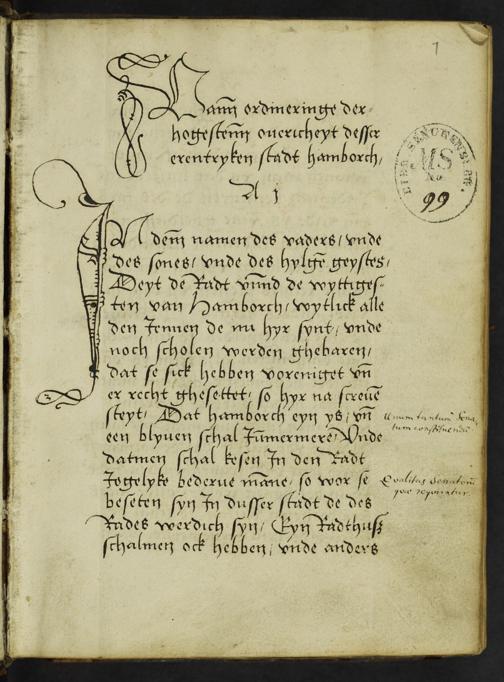 1
Vann ordineringe der
hogestenn ouericheyt desser
erentryken stadt hamborch,
A j
IN dem namen des vaders, vnde
des sones, vnde des hylge geystes,
Deyt de Radt vnnd de wyttiges-
ten van Hamborch, wytlick alle
den Jennen de nu hyr synt, vnde
noch scholen werden ghebaren,
dat se sick hebben voreniget vn
er recht ghesettet, so hyr na screue
steyt, Dat hamborch eyn ys, vn
een blyuen schal Jummermere, Vnde
datmen schal kesen Jn den Radt
Jogelyke bederue manne, so wor se
beseten syn Jn dusser stadt de des
Rades werdich syn, Eyn Radthusz
schalmen ock hebben, vnde anders
MS
No
99
Vnum tantum Sena-
tum constituendu
Qualitas Senatorum
quae requiratur